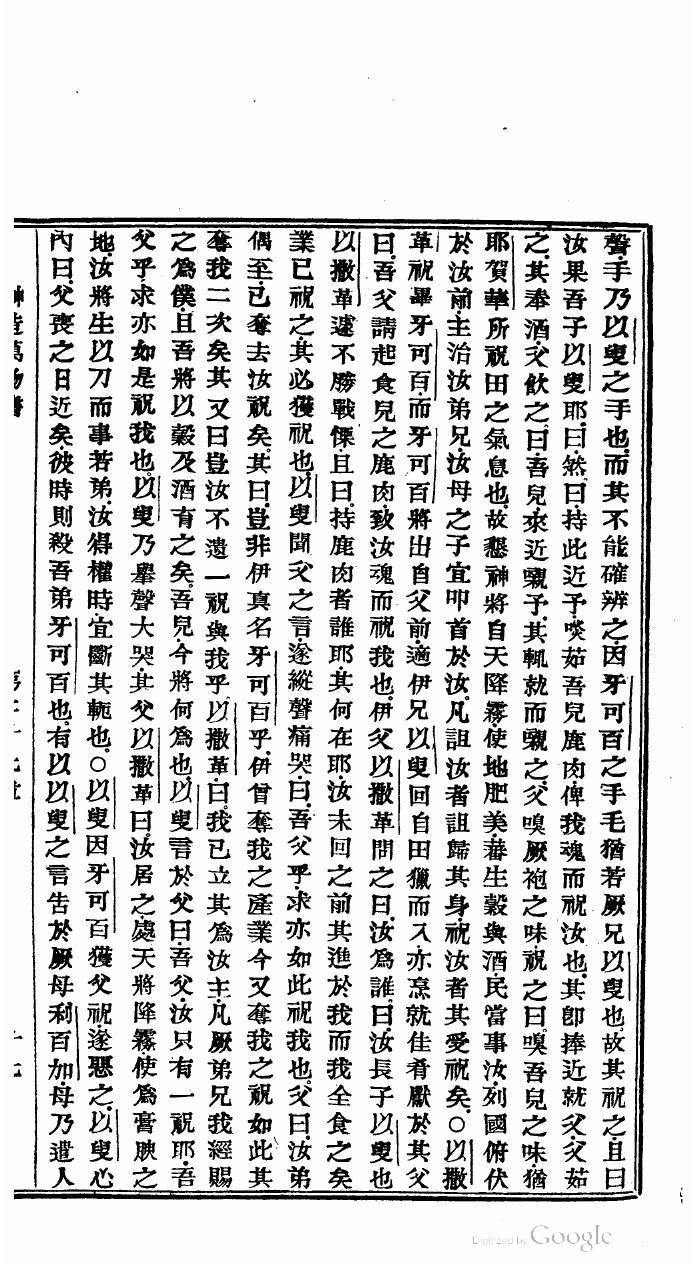 聲手乃以叟之手也而其不能確辨之因牙可百之手毛猶若厥兄以叟也故其祝之且曰
汝果吾子以叟耶曰然曰持此近予啖茹吾兒鹿肉俾我魂而祝汝也其卽捧近就父父茹
之其奉酒父飲之曰吾兒來近嚫予其輒就而嚫之父嗅厥袍之味祝之曰嗅吾兒之味猶
耶賀華所祝田之氣息也故懇神將自天降雾使地肥美蕃生穀與酒民當事汝列國俯伏
於汝前主治汝弟兄汝母之子宜叩首於汝凡詛汝者詛歸其身祝汝者其受祝矣○以撒
革祝畢牙可百而牙可百將出自父前適伊兄以叟回自田獵而入亦烹就佳肴獻於其父
曰吾父請起食兒之鹿肉致汝魂而祝我也伊父以撒革問之曰汝為誰曰汝長子以叟也
以撒革遽不勝戰慄且曰持鹿肉者誰耶其何在耶汝未回之前其進於我而我全食之矣
業已祝之其必獲祝也以叟聞父之言遂縱聲痛哭曰吾父乎求亦如此祝我也父曰汝弟
偶至已奪去汝祝矣其曰豈非伊真名牙可百乎伊曾奪我之產業今又奪我之祝如此其
奪我二次矣其又曰豈汝不遺一祝與我乎以撒革曰我已立其為汝主凡厥弟兄我經賜
之為僕且吾將以穀及酒有之矣吾兒今將何為也以叟言於父曰吾父汝只有一祝耶吾
父乎求亦如是祝我也以叟乃舉聲大哭其父以撒革曰汝居之處天將降雾使為膏腴之
地汝將生以刀而事若弟汝得權時宜斷其軛也○以叟因牙可百獲父祝遂惡之以叟心
內曰父喪之日近矣彼時則殺吾弟牙可百也有以以叟之言告於厥母利百加母乃遣人
神造萬物書 第二十七章 十七
Digitized by Google